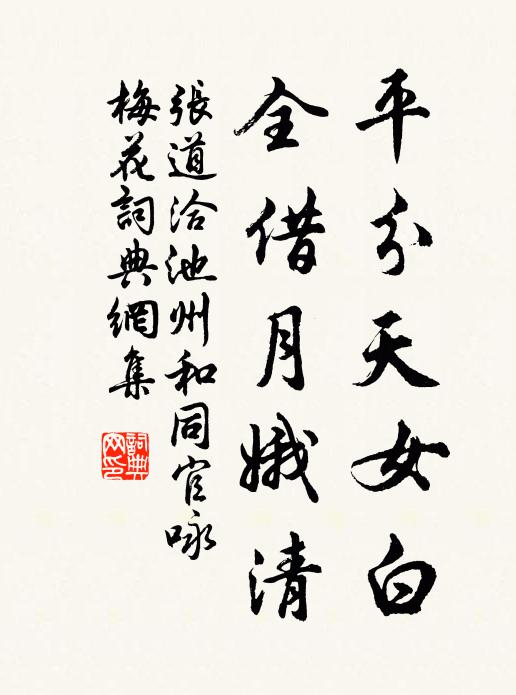 平分天女白
全借月娥清
張道洽池州和同官咏
梅花詞典網集
詞典
网印